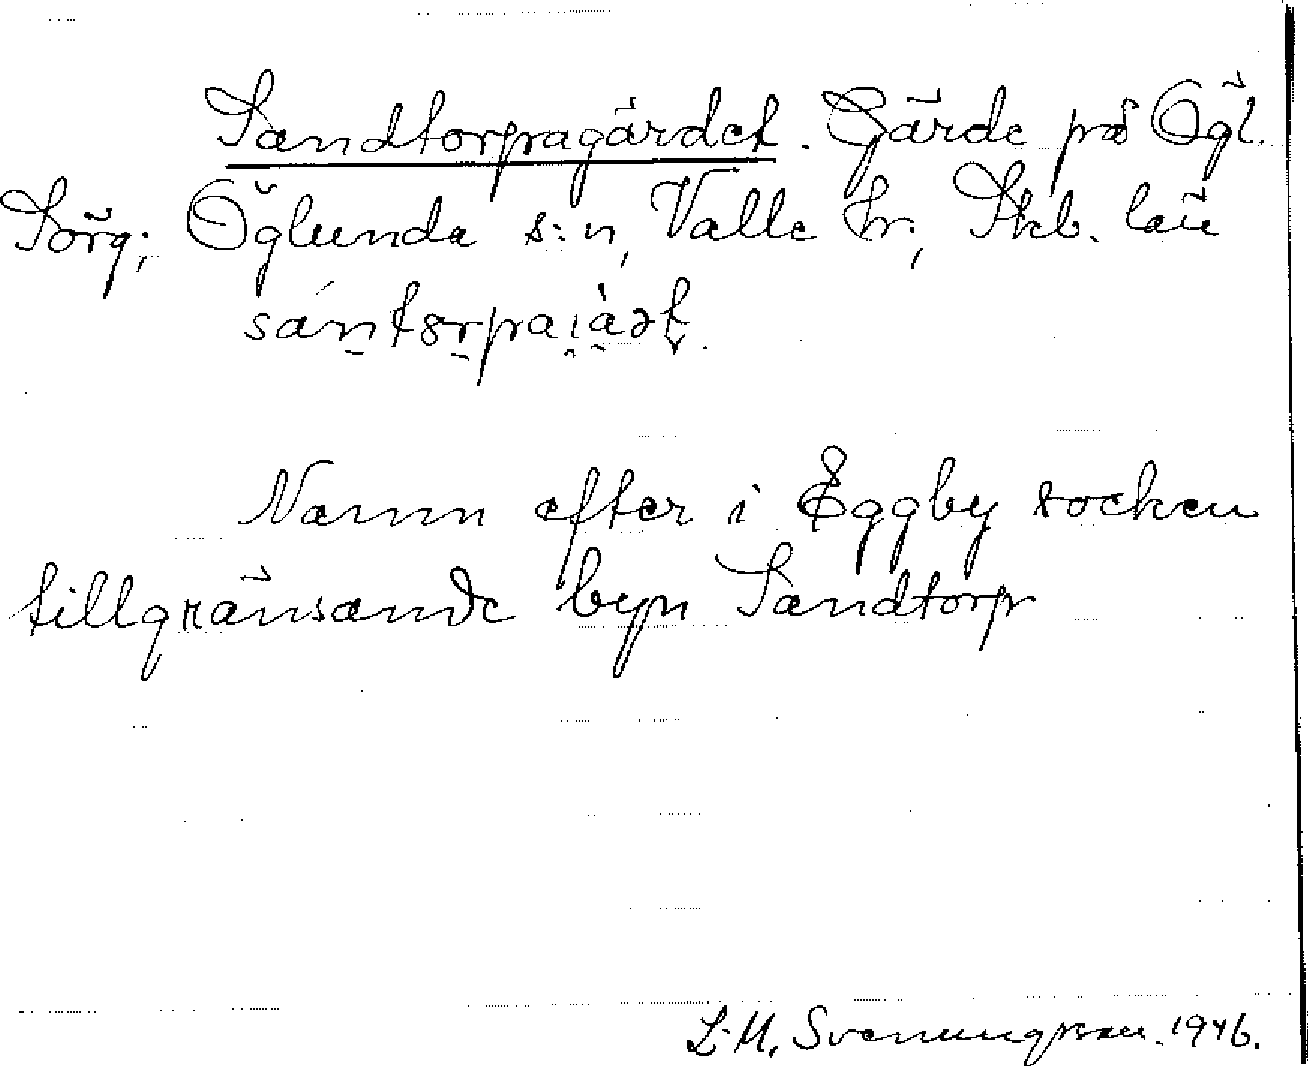 Sandtorpagärdet. Gärde på Ögl.
Sörg; Öglunda s:n, Valle hr; Skb. län
Namn efter i Eggby socken
tillgränsande byn Sandtorp
L-M. Svenungsson. 1946.